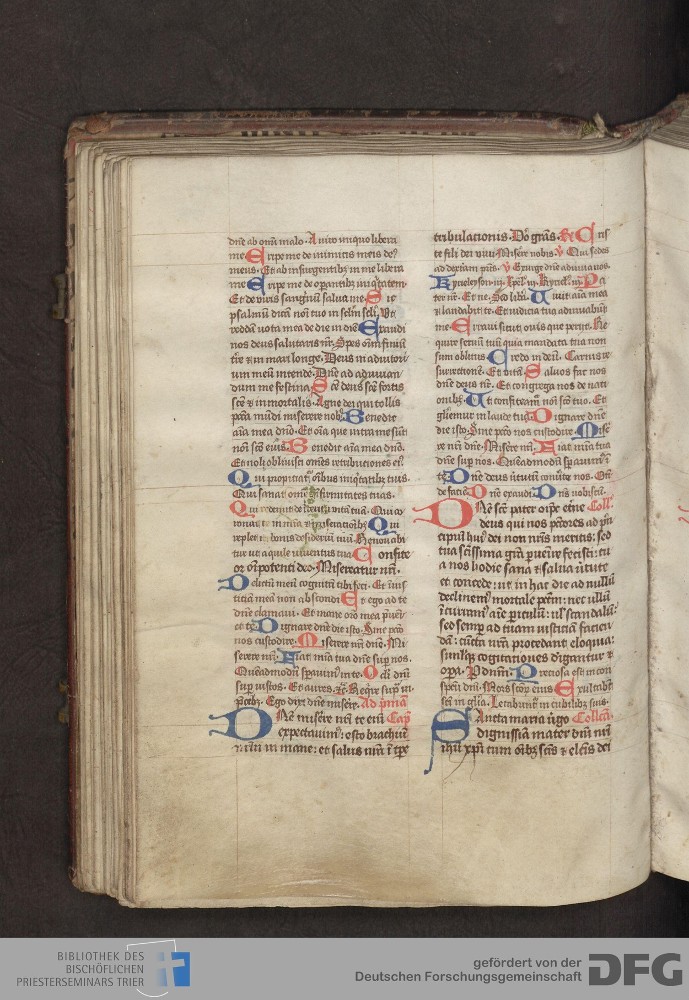 dn̄e ab om̄i malo. A viro iniquo libera
me E ripe me de inimicis meis de9
meus. Et ab insurgentibꝫ in me libera
me E ripe me de opantibꝫ iniq̇tatem
Et de viris sanguinū salua me S ic
psalmū dicā noī tuo in sclm̄ scli. Vt
reddā vota mea de die in diē E xaudi
nos deus salutaris nr̄. Spes oīm finiū
tr̄e ⁊ in mari longe. Deus in adiutori
um meū intende. Dn̄e ad adiuuan
dum me festina S cs̄ deus scs̄ fortis
scs̄ ⁊ inmortalis. Agne dei qui tollis
pcc̄a mūdi miserere nobꝫ B enedic
aīa mea dn̄o. Et oīa que intra me sunt
noī scō eius B enedic aīa mea dn̄o.
Et noli obliuisci om̄es retributiones ei9
Q ui propiciat̉ oībus iniq̇tatibꝫ tuis.
Qui sanat om̄es infirmitates tuas.
Q ui redimit de interitu vitā tuā. Qui co
ronat te in mīa ⁊ miseracionibꝫ Q ui
replet in bonis desideriū tuū. Renouabi
tur ut aquile iuuentus tua C onfite
or oīpotenti deo. Misereatur nr̄i.
D elictū meū cognitū tibi feci. Et iniu
sticiā meā non abscondi E t ego ad te
dn̄e clamaui. Et mane orō mea p̄ueni
et te D ignare dn̄e die isto. Sine pcc̄o
nos custodire. M iserere nr̄i dn̄e. Mi
serere nr̄i. F iat mīa tua dn̄e sup nos.
Quēadmodū sperauimꝰ in te. O cl̄i dn̄i
sup iustos. Et aures. ⁊c̄. Requie sup im
pcibꝫ. Ego dixi dn̄e misere. Ad p̄mā
D n̄e misere nr̄i te eni Cap̄
expectauimꝰ: esto brachiū
nr̄m in mane: et salus nr̄a ī tpe
tribulationis. Do graš. R̄ C ris
te fili dei viui Miserē nobis. V̄ Qui sedes
ad dexteram pr̄is. V̄ Exurge dn̄e adiuua nos.
K yrieleyson. iij. Xpel̄. iij. Kyriel̄. iij. P a
ter nr̄. Et ne. Sꝫ liba. V iuit aīa mea
⁊ laudabit te. Et iudicia tua adiuuabūt
me. E rraui sicut ouis que periit. Re
quire seruū tuū quia mandata tua non
sum oblitus C redo in deū. Carnis re
surrectionē. Et vitā S aluos fac nos
dn̄e deus nr̄. Et congrega nos de nati
onibꝫ. V t confiteam̄ noī scō tuo. Et
gl̄iemur in laude tua D ignare dn̄e
die isto. Sine pcc̄o nos custodire. M isē
re nr̄i dn̄e. Misere nr̄i. F iat mīa tua
dn̄e sup nos. Quēadmodū sperauimꝰ ī
te. D n̄e deus v̉tutū conūte nos. Ost
de faciē. D n̄e exaudi. D n̄s nobiscū.
D n̄e scē pater oīps etn̄e Coll̄
deus qui nos peccores ad p̄n
cipiū huī9 dei non nr̄is meritis: sed
tua sc̄issima grā p̄uenire fecisti: tu
a nos hodie sana ⁊ salua v̉tute
et concede: ut in hac die ad nullū
declinem9 mortale pctm̄: nec ullū
ī curram9 aīe p̄iculū: ul̄ scandalū:
sed semp ad tuam iusticiā facien
dā: cūcta nr̄a procedant eloquia:
simul̄qꝫ cogitationes dirigantur ⁊
opa. P dn̄m. P reciosa est in con
spctū dn̄i. Mors scōꝝ eius E xultabt
scī in glīa. Letabunt̉ in cubilibꝫ suis.
S ancta maria v̉go Collcā
dignissīa mater dn̄i nr̄i
ihū xp̄i cum oībꝫ scīs ⁊ elcīs dei
BIBLIOTHEK DES
BISCHÖFLICHEN
PRIESTERSEMINARS TRIER
gefördert von der
Deutschen Forschungsgemeinschaft
DFG